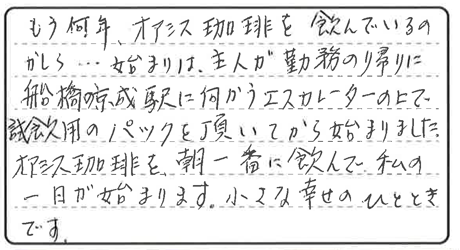 もう何年、オアシス珈琲を飲んでいるの
かしら…始まりは、主人が勤務の帰りに
船橋の京成駅に向かうエスカレーターの上で
試飲用のパックを頂いてから始まりました。
オアシス珈琲を、朝一番に飲んで私の
一日が始まります。小さな幸せのひととき
です。